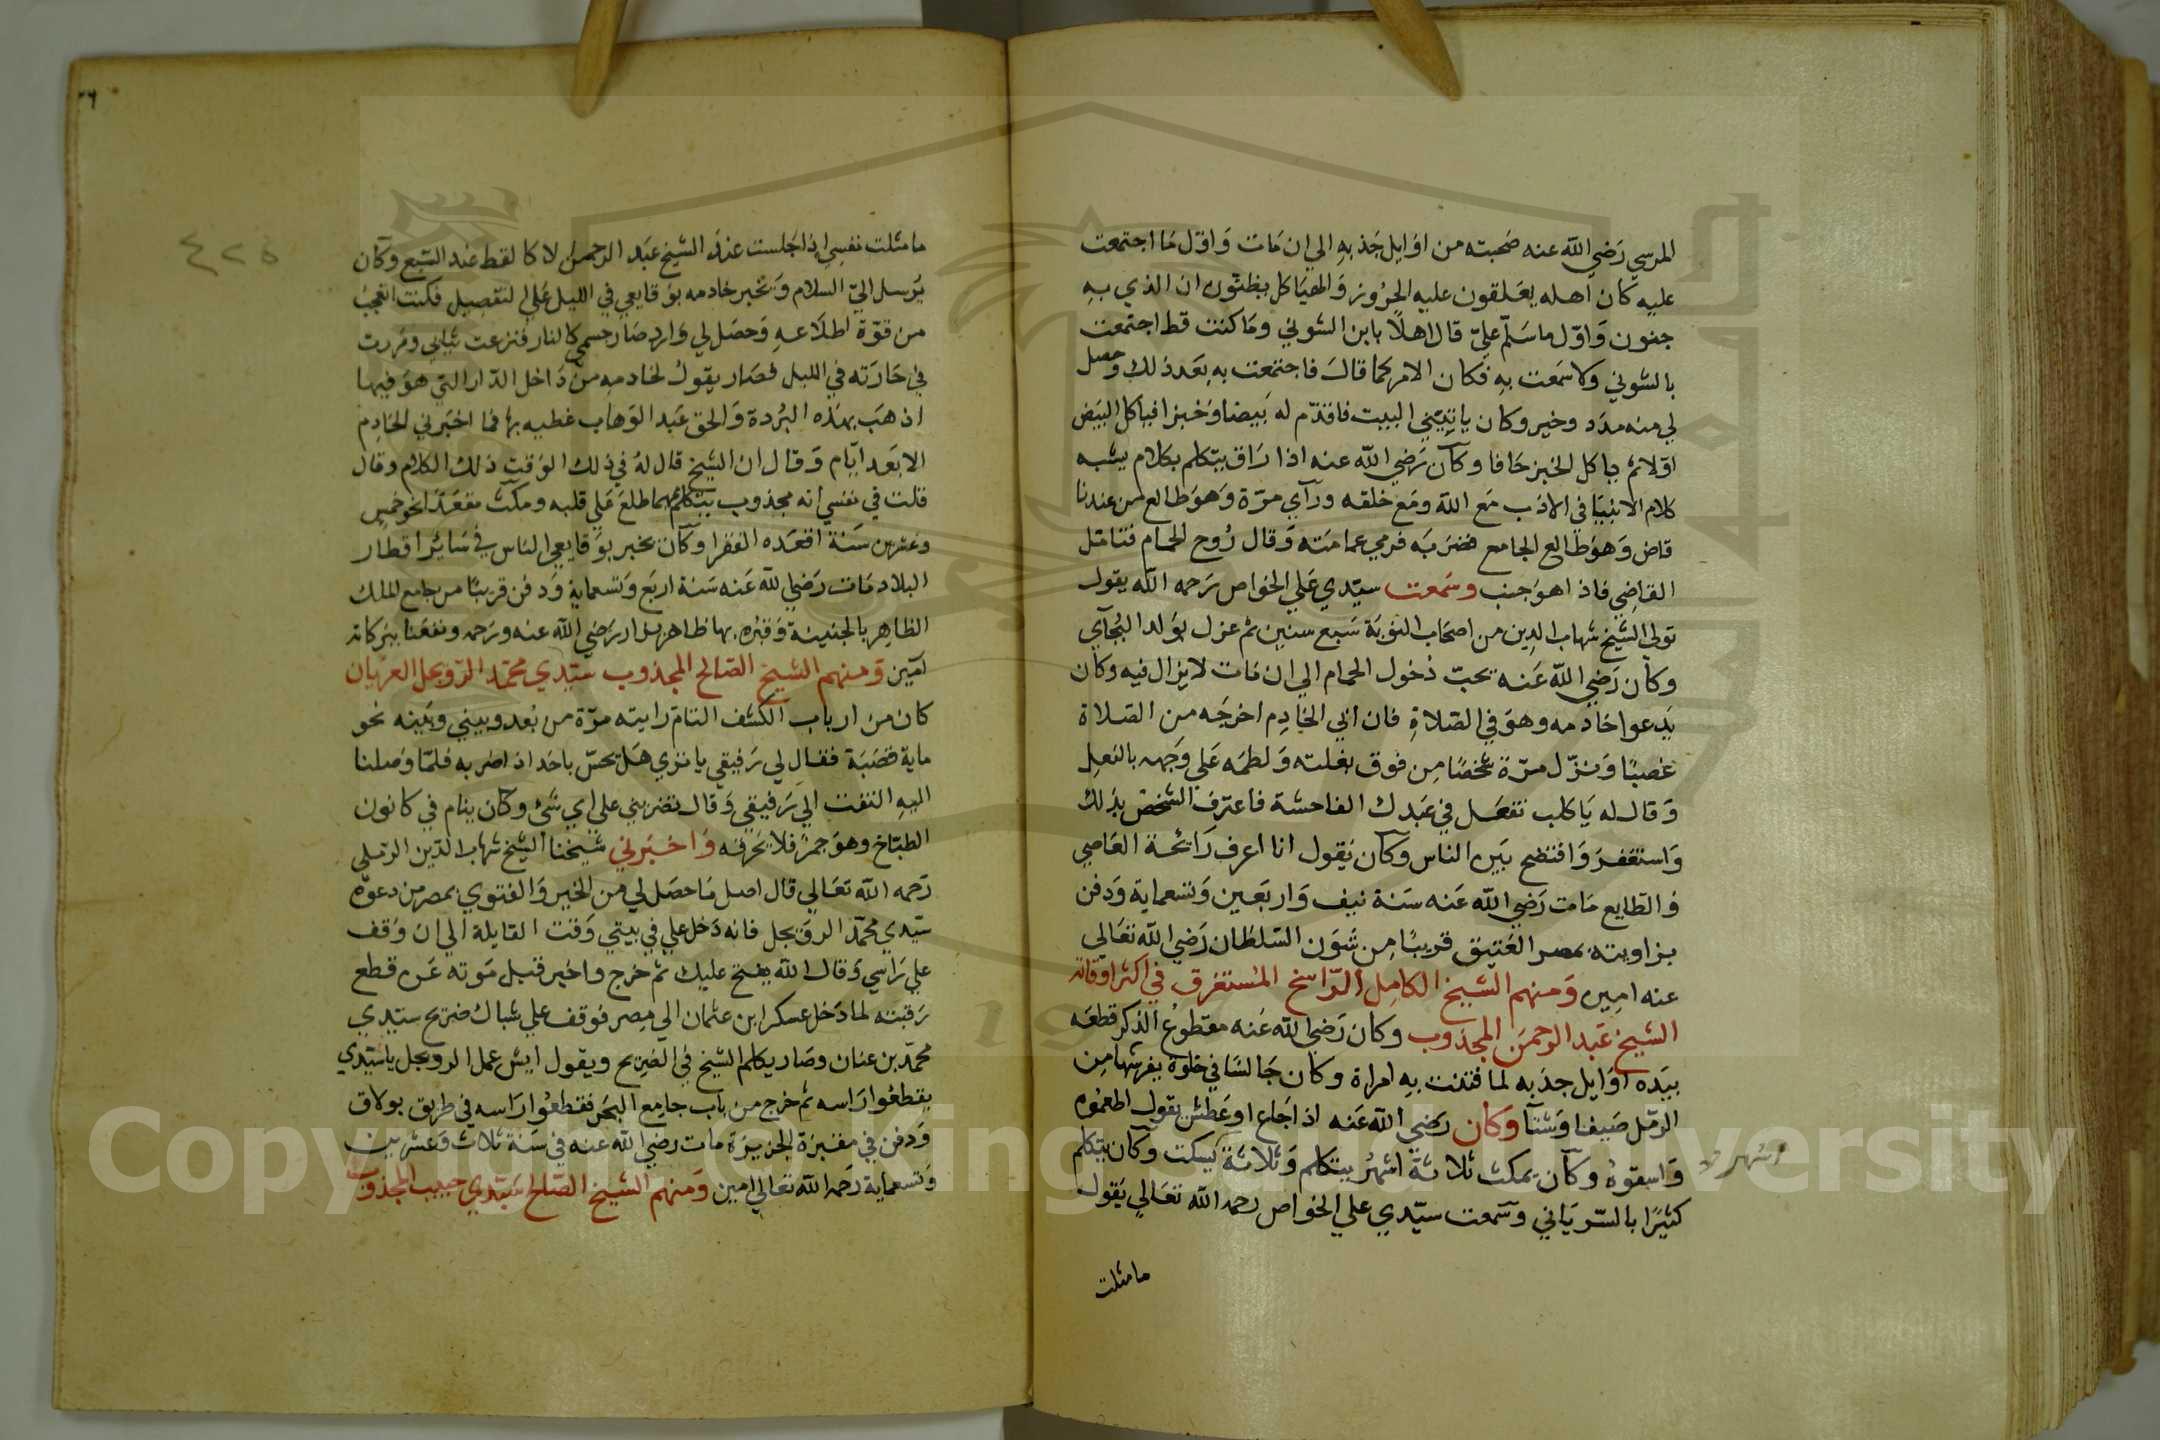 المرسي رضي الله عنه صحبته من اوايل جذبه الي ان مات واول ما اجتمعت
عليه كان اهله يعلقون عليه الحروز والهياكل يظنون ان الذي به
جنون واول ما سلم علي قال اهلا بابن الشوني وما كنت قط اجتمعت
بالشوني ولا سمعت به فكان الامر كما قال فاجتمعت به بعد ذلك وحصل
لي منه مدد وخير وكان ياتيني البيت فاقدم له بيضا وخبزا فياكل البيض
اولا ثم ياكل الخبز حافا وكان رضي الله عنه اذا راق يتكلم بكلام يشبه
كلام الانبيا في الادب مع الله ومع خلقه وراي مرة وهو طالع من عندنا
قاض وهو طالع الجامع فضربه فرمي عمامته وقال روح الحمام فتامل
القاضي فاذا هو جنب وسمعت سيدي علي الخواص رحمه الله يقول
تولي الشيخ شهاب الدين من اصحاب النوبة سبع سنين ثم عزل بولد البجآي
وكان رضي الله عنه يحب دخول الحمام الي ان مات لا يزال فيه وكان
يدعوا خادمه وهو في الصلاة فان ابي الخادم اخرجه من الصلاة
غصبا ونزل مرة شخصا من فوق بغلته ولطمه علي وجهه بالنعل
وقال له يا كلب تفعل في عبدك الفاحشة فاعترف الشخص بذلك
واستغفر وافتضح بين الناس وكان يقول انا اعرف رائحة العاصي
والطايع مات رضي الله عنه سنة نيف واربعين وتسعماية ودفن
بزاويته بمصر العتيق قريبا من شون السلطان رضي الله تعالي
عنه امين ومنهم الشيخ الكامل الراسخ المستغرق في اكثر اوقاته
الشيخ عبد الرحمن المجذوب وكان رضي الله عنه مقطوع الذكر قطعه
بيده اوايل جذبه لما فتنت به امراة وكان جالسا في خلوة يفرشها من
الرمل صيفا وشتآ وكان رضي الله عنه اذا جاع او عطش يقول اطعموه
واسقوه وكان يمكث ثلاثة اشهر يتكلم وثلاثة يسكت وكان يتكلم
كثيرا بالسرياني وسمعت سيدي علي الخواص رحمه الله تعالي يقول
ما مثلت
ما مثلت نفسي اذا جلست عند الشيخ عبد الرحمن الا كالقط عند السبع وكان
يرسل الي السلام ويخبر خادمه بوقايعي في الليل علي التفصيل فكنت اتعجب
من قوة اطلاعه وحصل لي وارد صار جسمي كالنار فنزعت ثيابي ومررت
في حارته في الليل فصار يقول لخادمه من داخل الدار التي هو فيها
اذهب بهذه البردة والحق عبد الوهاب غطيه بها فما اخبرني الخادم
الا بعد ايام وقال ان الشيخ قال له في ذلك الوقت ذلك الكلام وقال
قلت في نفسي انه مجذوب يتكلم بما طلع علي قلبه ومكث مقعدا نحو خمس
وعشرين سنة اقعده الفقرا وكان يخبر بوقايع الناس في سائر اقطار
البلاد مات رضي الله عنه سنة اربع وتسعماية ودفن قريبا من جامع الملك
الظاهر بالحنينة وقبره بها ظاهر يزار رضي الله عنه ورحمه ونفعنا ببركاته
امين ومنهم الشيخ الصالح المجذوب سيدي محمد الرويجل العريان
كان من ارباب الكشف التام رايته مرة من بعد وبيني وبينه نحو
ماية قصبة فقال لي رفيقي يا تري هل يحس باحد اذا ضربه فلما وصلنا
اليه التفت الي رفيقي وقال تضربني علي اي شئ وكان ينام في كانون
الطباخ وهو جمر فلا يحرقه واخبرني شيخنا الشيخ شهاب الدين الرملي
رحمه الله تعالي قال اصل ما حصل لي من الخير والفتوي بمصر من دعوة
سيدي محمد الرويجل فانه دخل علي في بيتي وقت القايلة الي ان وقف
علي راسي وقال الله يفتح عليك ثم خرج واخبر قبل موته عن قطع
رقبته لما دخل عسكر ابن عثمان الي مصر فوقف علي شباك ضريح سيدي
محمد بن عنان وصار يكلم الشيخ في الضريح ويقول ايش عمل الرويجل يا سيدي
يقطعوا راسه ثم خرج من باب جامع البحر فقطعوا راسه في طريق بولاق
ودفن في مقبرة الجزيرة مات رضي الله عنه في سنة ثلاث وعشرين
وتسعماية رحمه الله تعالي امين ومنهم الشيخ الصالح سيدي حبيب المجذوب
٤٢٥
Copyright © King Saud University